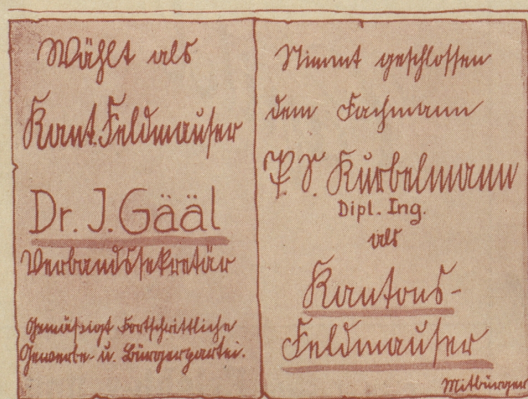 Wählt als
Kant. Feldmauser
Dr. J. Gääl
Verbandssekretär
Gemäßigt Fortschrittliche
Gewerbe- u. Bürgerpartei.
Stimmt geschlossen
dem Fachmann
P. S. Kurbelmann
Dipl. Ing.
als
Kantons-
Feldmauser
Mitbürger